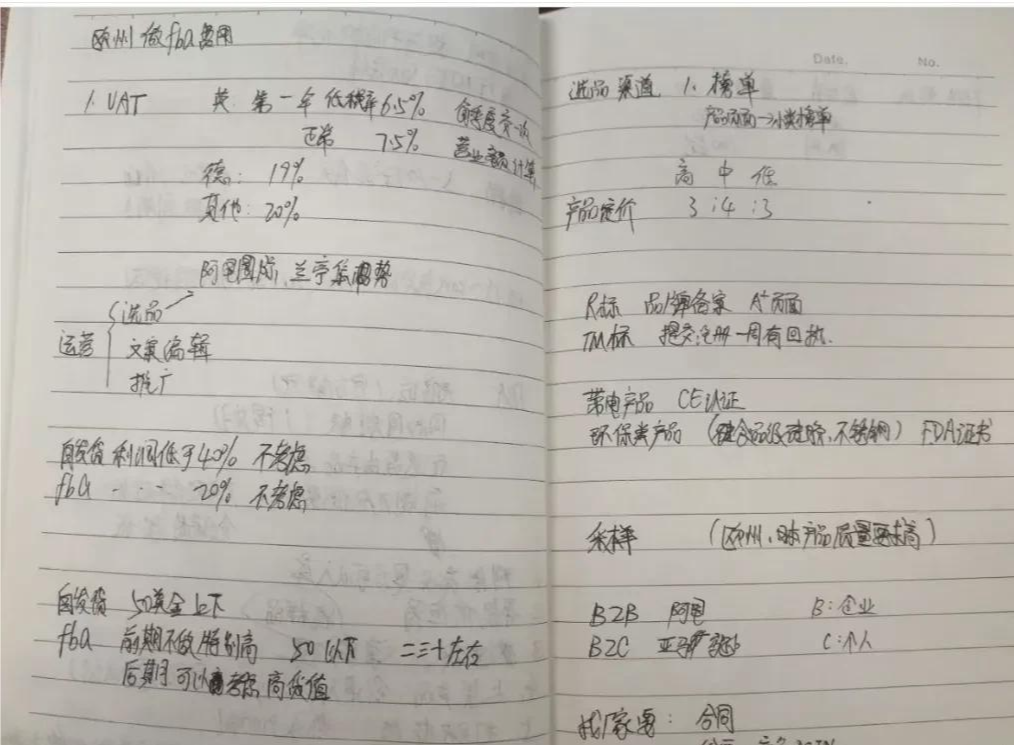 欧州做fba费用
1. VAT 英 第一年 低税率 6.5% 每季度交一次
正常 7.5% 营业额计算
德: 19%
其他: 20%
阿里国际、兰亭集势
运营 选品
文案编辑
推广
自发货 利润低于40% 不考虑
fba - - 20% 不考虑
自发货 50美金上下
fba 前期不做特别高 50以下 二三十左右
后期可以考虑高货值
Date. No.
选品渠道 1. 榜单
产品页面→小类榜单
高 中 低
产品定价 3:4:3
R标 品牌备案 A+页面
TM标 提交注册一周有回执.
带电产品 CE认证
环保类产品 (硅食品级硅胶,不锈钢) FDA证书
采样 (欧州、日本产品质量要求高)
B2B 阿里 B:企业
B2C 亚马逊 C:个人
找厂家要: 合同